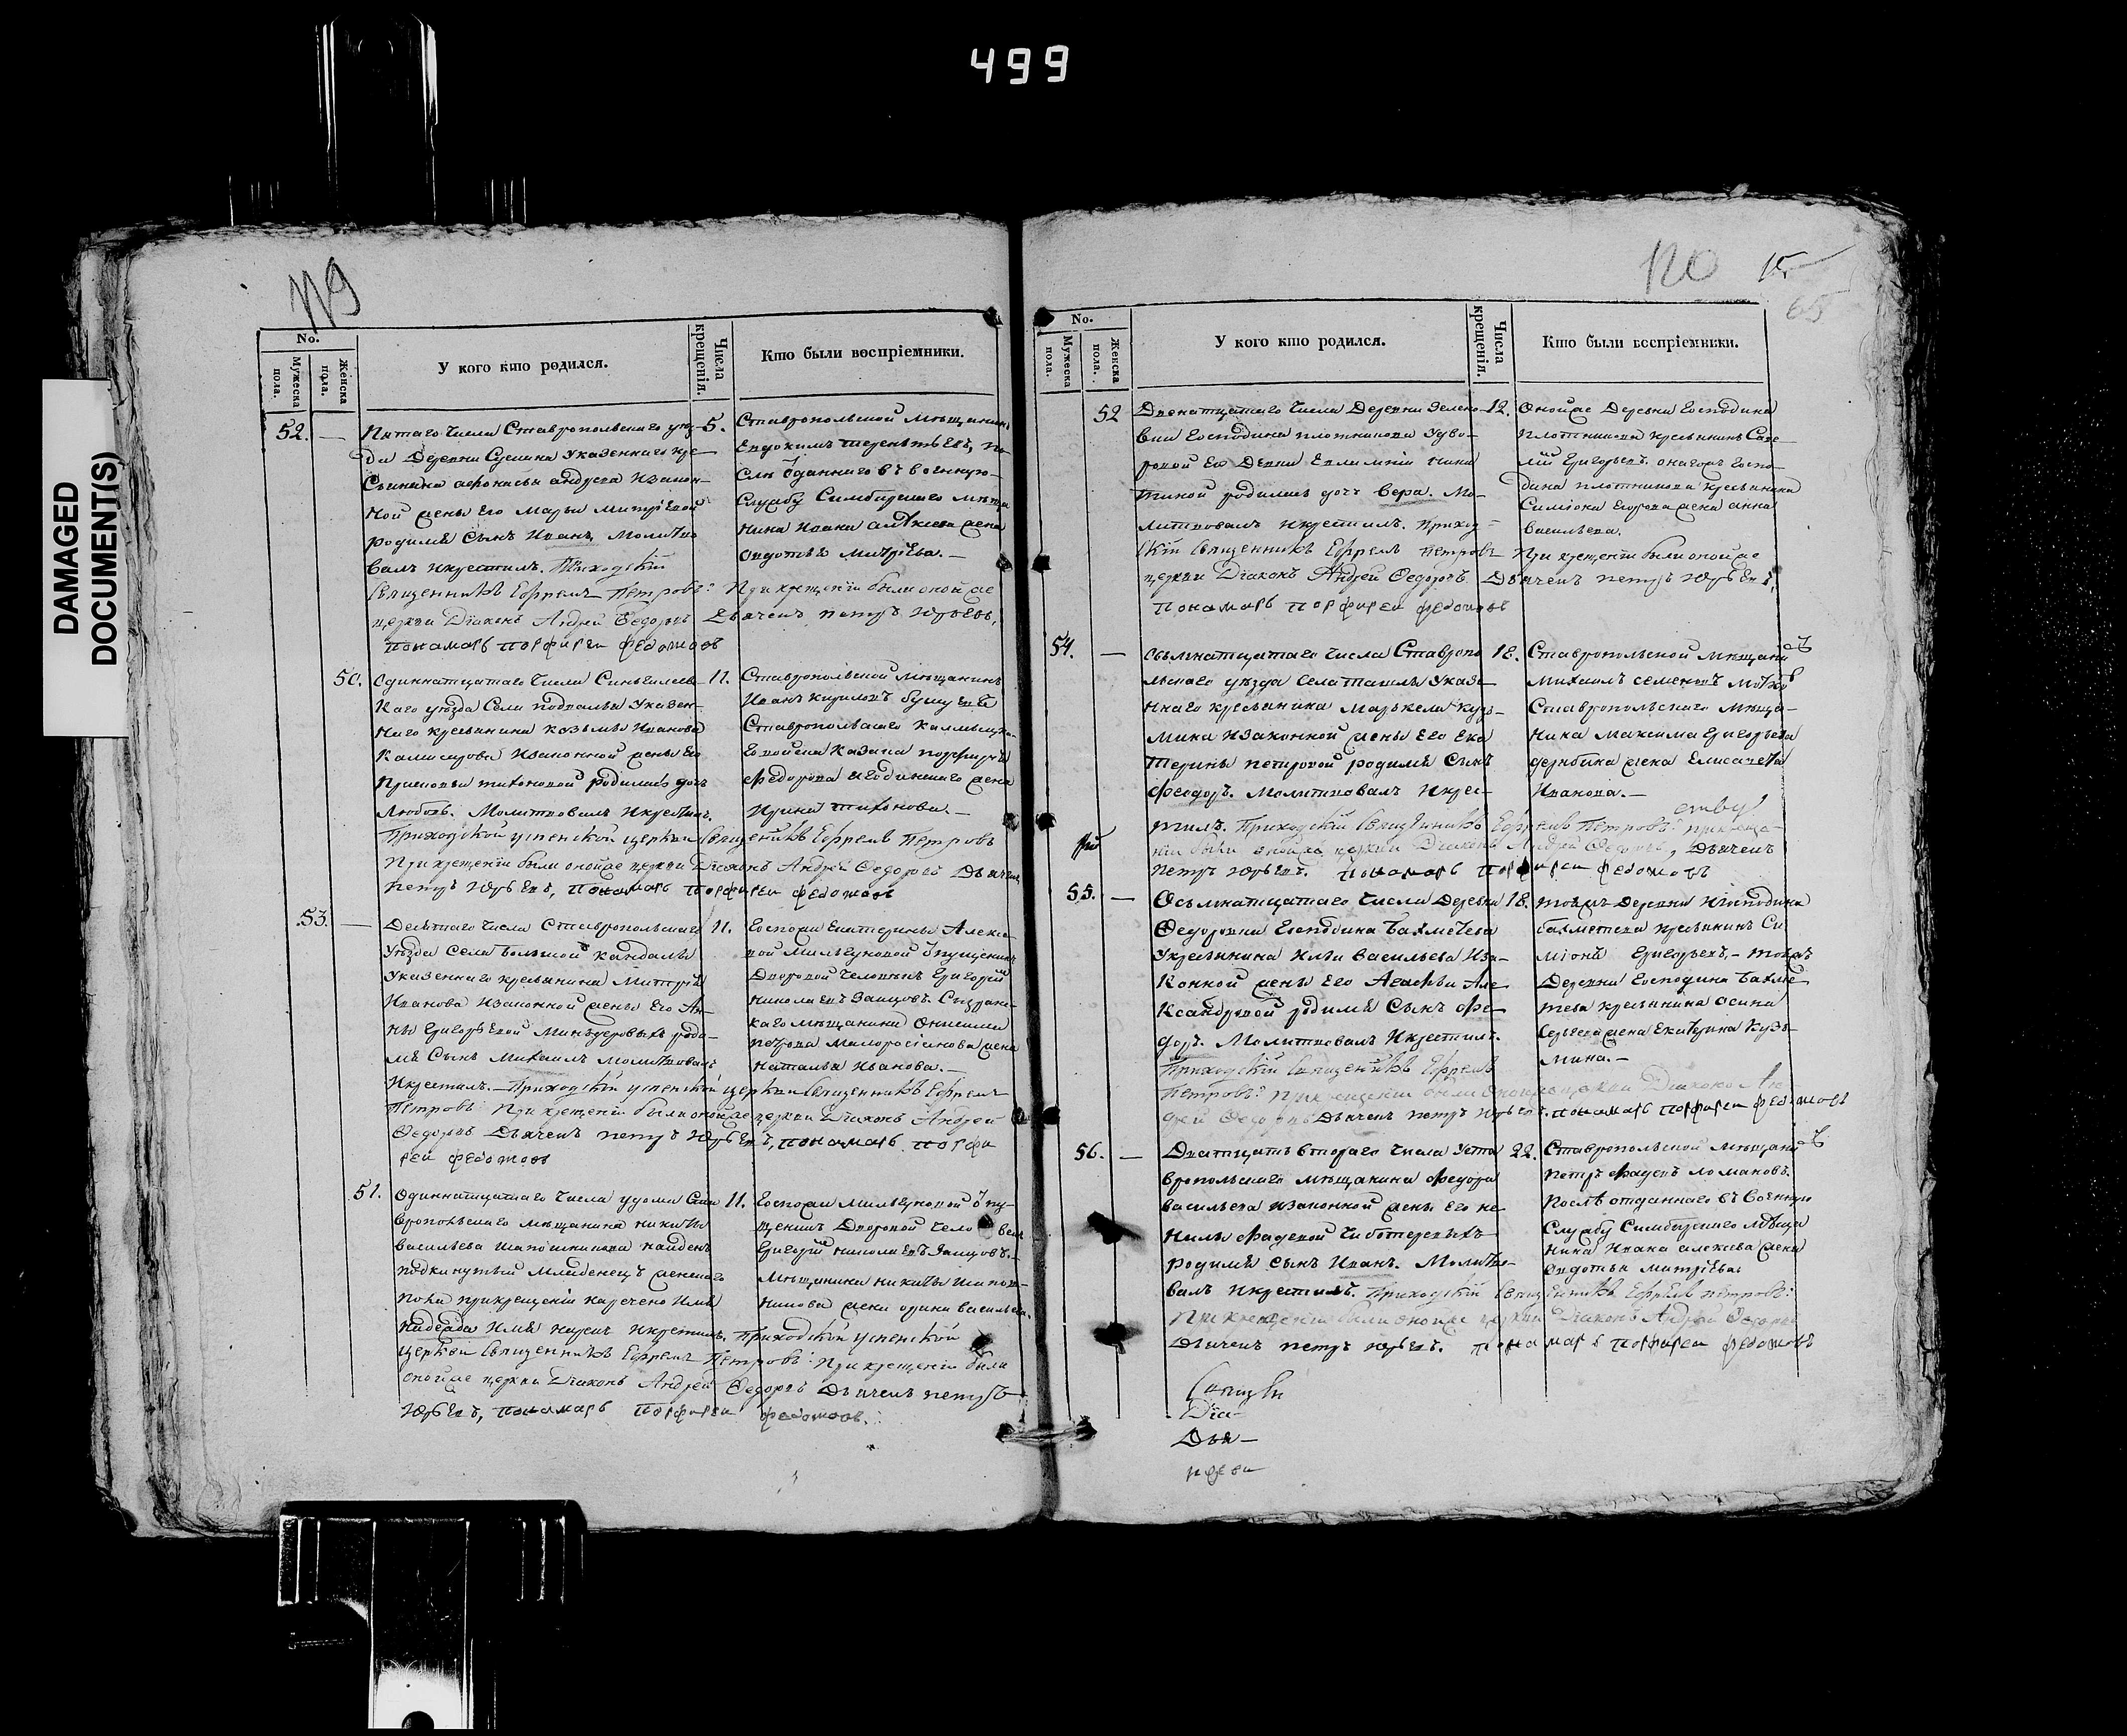 499
DAMAGED
DOCUMENT(S)
119
No.
Мужеска пола.
Женска пола.
У кого кто родился.
Числа крещенія.
Кто были воспріемники.
52. — Пятаго числа Ставропольскаго уѣз-
да Деревни Сускина Указеннаго кре-
стьянина афонасья андреева Изакон-
ной жены Его Марьи Митріевой
родился Сынъ Иванъ, молитво
валъ икрестилъ. Приходскій
Священникъ Ефремъ Петровъ: При крещеніи были оной же
церкви Діаконъ Андрей Ѳедоровъ Дьячекъ петръ Юрьевъ,
пономарь порфирей федотовъ
5.
Ставропольской Мѣщанинъ
Евдокимъ терентьевъ, по
слѣ отданнаго въ военную
Службу Симбирскаго мѣща
нина Ивана алѣксева жена
овдотья митріева. —
50. Одиннатцатаго числа Сингилеев-
Каго уѣзда Села подвалья Указен-
наго кресьянина козьмы Иванова
Изаконной жены Его
Прасковьи тихоновой родилась дочь
Любовь. Молитвовалъ Икрестилъ.
Приходской успенской церкви Священникъ Ефремъ Петровъ
При крещеніи были оной же церкви Діаконъ Андрей Ѳедоровъ Дьячекъ
петръ Юрьевъ, пономарь порфирей федотовъ
11.
Ставропольской мѣщанинъ
Иванъ кириловъ
Ставропольскаго Калмыцка-
го войска Казака порфирья
федорова жена
Ирина тихонова. —
53. — Десятаго числа Ставропольскаго
Уѣзда Села большой кандалы
Указеннаго кресьянина Митрія
Иванова Изаконной жены Его Ан-
ны Григорьевой роди-
лся Сынъ Михаилъ молитвовалъ
Икрестилъ. — Приходскій успенской церкви Священникъ Ефремъ
Петровъ При крещеніи были оной же церкви Діаконъ Андрей
Ѳедоровъ Дьячекъ петръ Юрьевъ, пономарь порфи
рей федотовъ
11.
Госпожи Екатерины Алексе-
вой Мильгуновой
Дворовой человекъ Григорій
николаевъ Зайцовъ. Сызранс-
каго мѣщанина Онисима
петрова жена
наталья Иванова. —
51. Одиннатцатаго числа удома Ста
вропольскаго мѣщанина никиты
васильева шапошникова найденъ
подкинутый младенецъ женскаго
пола прикрещеніи наречено Имя
надежда Имя нарекъ Икрестилъ. Приходской успенской
церкви Священникъ Ефремъ Петровъ: При крещеніи были
оной же церкви Діаконъ Андрей Ѳедоровъ Дьячекъ петръ
Юрьевъ, пономарь порфирей федотовъ.
11.
Госпожи Мильгуновой
Дворовой чело векъ
Григорій николаевъ Зайцовъ. —
Мѣщанина никиты шапош-
никова жена орина васильева.
120
15
65
No.
Мужеска пола.
Женска пола.
У кого кто родился.
Числа крещенія.
Кто были воспріемники.
52 Двенатцатаго числа Деревни Зелено-
вки Господина плотникова Удво-
ровой Его Девки Евлампіи ники
тиной родилась дочь Вера. Мо-
литвовалъ икрестилъ. Приход-
скій Священникъ Ефремъ Петровъ При крещеніи были оной же
церкви Діаконъ Андрей Ѳедоровъ. Дьячекъ петръ Юрьевъ,
пономарь порфирей федотовъ
12.
Оной же Деревни Господина
плотникова кресьянинъ Саве-
лій Григорьевъ. онагожъ Госпо-
дина плотникова кресьянина
Симіона Егорова жена анна
васильева.
54. — Осьмнатцатаго числа Ставропо
льскаго уѣзда Села ташлы Указе
ннаго кресьянина Маркела Кузь-
мина Изаконной жены Его Ека
терины петровой родился Сынъ
Феодоръ. Молитвовалъ Икрес-
тилъ. Приходскій Священникъ Ефремъ Петровъ: при креще-
ніи были оной же церкви Діаконъ Андрей Ѳедоровъ, Дьячекъ
Петръ Юрьевъ. пономарь порфирей федотовъ
18.
Ставропольской мѣщанинъ
михаилъ семеновъ
Ставропольскаго мѣща-
нина Максима Григорьева
жена Елисавета
Иванова. —
55. — Осьмнатцатаго числа Деревни
Федоровки Господина Бахметева
Укресьянина Ильи васильева Иза-
конной жены Его Агафьи Але
ксандровой родился Сынъ Фе-
доръ. Молитвовалъ Икрестилъ.
Приходскій Священникъ Ефремъ
Петровъ: При крещеніи были оной же церкви Діаконъ Ан-
дрей Ѳедоровъ Дьячекъ петръ Юрьевъ. пономарь порфирей федотовъ
18.
тояжъ Деревни Игосподина
бахметева кресьянинъ Си-
міонъ Григорьевъ, — тояжъ
Деревни Господина Бахме
тева кресьянина осипа
Сергеева жена Екатерина Кузь-
мина. —
56. — Дватцать втораго числа Уста
вропольскаго мѣщанина Федора
васильева Изаконной жены Его не-
нилы Фадеевой
родился Сынъ Иванъ. Молитво-
валъ икрестилъ. Приходскій Священникъ Ефремъ петровъ:
При крещеніи были оной же церкви Діаконъ Андрей Ѳедоровъ
Дьячекъ петръ юрьевъ. пономарь порфирей федотовъ
22.
Ставропольской мѣщанинъ
петръ Фадеевъ ломановъ.
послѣ отданнаго въ военную
Службу Симбирскаго мѣща
нина Ивана алексева жена
овдотья митріева.
Свяще
Діа-
Дья —